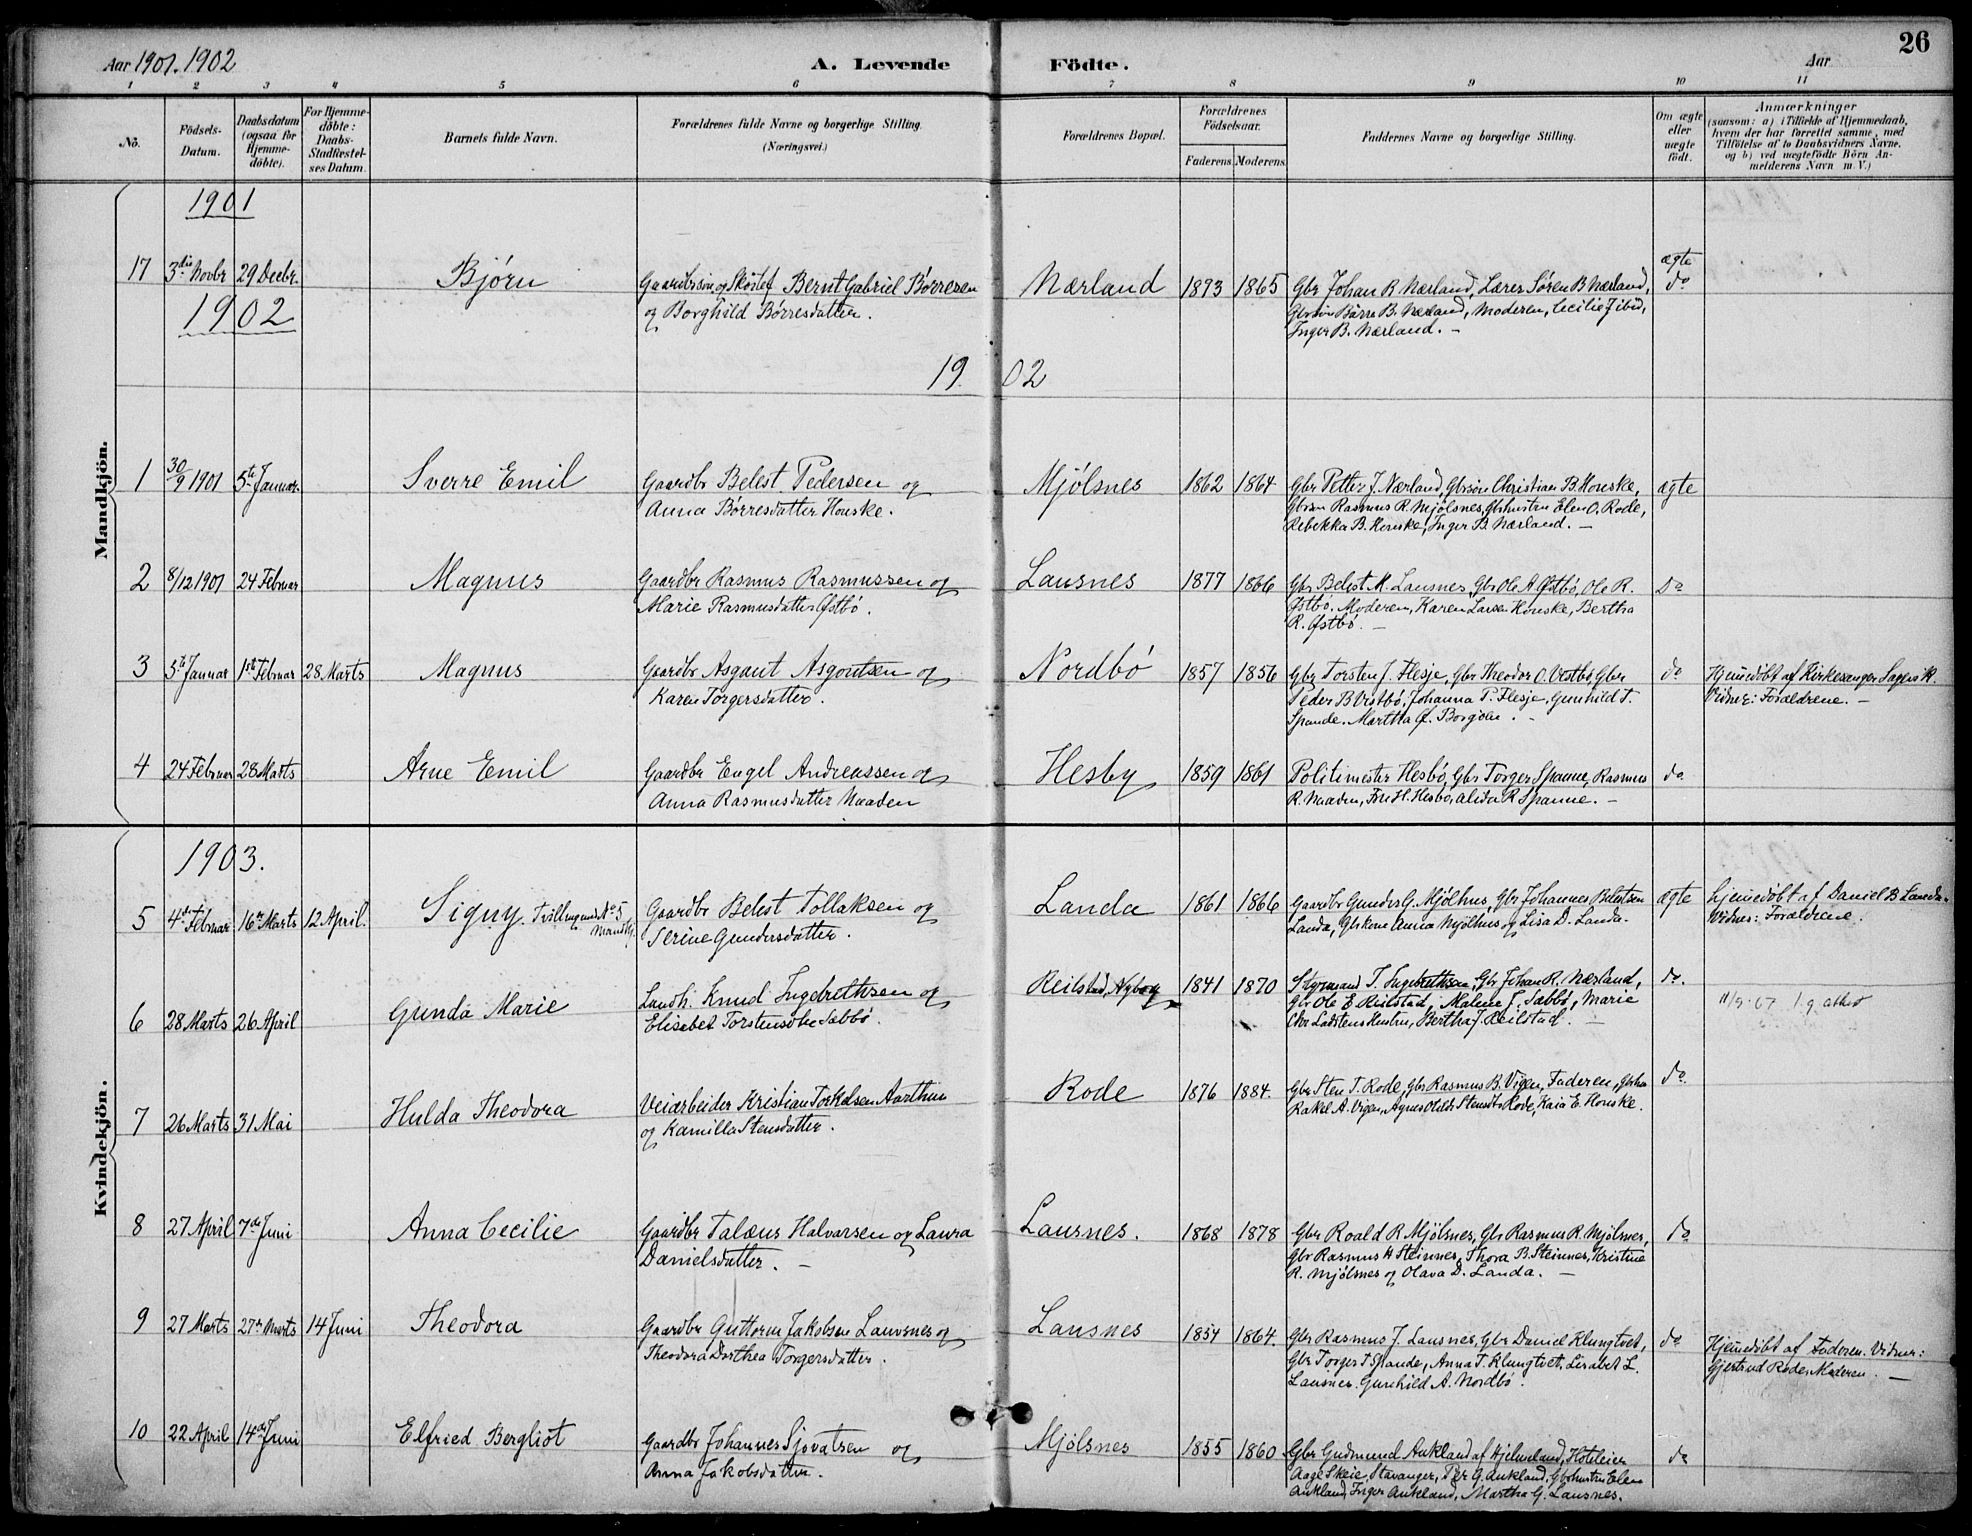 Aar 1901. 1902 A. Levende Födte. Aar 26
1 2 3 4 5 6 7 8 9 10 11
No. Födsels-Datum. Daabsdatum (ogsaa for Hjemme-döbte). For Hjemme-döbte: Daabs-Stadfæstel-ses Datum. Barnets fulde Navn. Forældrenes fulde Navne og borgerlige Stilling. (Næringsvei.) Forældrenes Bopæl. Forældrenes Födselsaar. Faderens. Moderens. Faddernes Navne og borgerlige Stilling. Om ægte eller uægte födt. Anmærkninger (saasom: a) i Tilfælde af Hjemmedaab, hvem der har forrettet samme, med Tilföielse af to Daabsvidners Navne. og b) ved uægtefödte Börn An-melderens Navn m. V.)
Mandkjön.
1901
17 3die Novbr 29 Decbr. Bjørn Gaardbrsøn og Skøitef Bernt Gabriel Børresen Nærland 1873 1865 Gbr Johan R Nærland, Lærer Søren B Nærland, ægte do
og Borghild Børresdatter. Gbrsøn Børre B. Nærland, Moderen, Cecilie J ibid,
Inger B. Nærland. –
1902
19 02
1 30/9 1901 5te Januar. Sverre Emil Gaardbr Belest Pedersen og Mjølsnes 1862 1864 Gbr Petter J. Nærland, Gbrsøn Christian B. Houske, ægte
Anna Børresdatter Houske. Gbrsøn Rasmus R. Mjølsnes, Gbrhustru Elen O. Rode,
Rebekka B. Houske, Inger B. Nærland. –
2 8/12 1901 24 Februar Magnus Gaardbr Rasmus Rasmussen og Lausnes 1877 1866 Gbr Belest M. Lausnes, Gbr Ole A Østbø, Ole R. Do
Marie Rasmusdatter Østbø. Østbø. Moderen, Karen Larsen Houske, Bertha
R. Østbø. –
3 5te Januar 1ste Februar 28 Marts Magnus Gaardbr Asgaut Asgoutsen og Nordbø 1857 1856 Gbr Torsten J. Flesje, Gbr Theodor O. Vestbø, Gbr do Hjemedøbt af Kirkesanger
Karen Torgersdatter. Peder B Vestbø, Johanna P. Flesje, Gunhild T. Vidner: Forældrene. –
Spande. Martha G. Borgøen. –
4 24 Februar 28 Marts Arne Emil Gaardbr Engel Andreassen og Hesby 1859 1861 Politimester Hesbø, Gbr Torger Spanne, Rasmus do
Anna Rasmusdatter Naaden R. Naaden, Fru H. Hesbø, Alida R Spanne. –
Kvindekjön.
1903.
5 4de Februar 16de Marts 12 April. Signy. Tvilling med No 5 Mandkj. Gaardbr Belest Tollaksen og Landa 1861 1866 Gaardbr Gunder G. Mjølhus, Gbr Johannes Belestsen ægte hjemedøbt af Daniel B Landa.
Serine Gundersdatter. Landa, Gbrkone Anna Mjølhus og Lisa D. Landa. Vidner: Forældrene.
6 28 Marts 26 April Gunda Marie Landh. Knud Ingebrethsen og Reilstad, Nyborg 1841 1870 Styrmand T. Ingebrethsen, Gbr Johan R. Nærland, do.
Elisabet Torstensdtr Sabbø. Gbr Ole E Reilstad, Malene J. Sabbø, Marie 11/9. 67 l.g. attest
Chr Ladstens Hustru, Bertha J. Reilstad. –
7 26 Marts 31 Mai Hulda Theodora Veiarbeider Kristian Torkelsen Aarthun Rode 1876 1884. Gbr Sten T. Rode, Gbr Rasmus B. Vigen, Faderen, Gbrko do.
og Kamilla Stensdatter. Rakel A. Vigen, Agnes Stensdtr Rode, Kaia E. Houske.
8 27 April 7de Juni Anna Cecilie Gaardbr Talæus Halvarsen og Laura Lausnes. 1868 1878 Gbr Roald R. Mjølsnes, Gbr Rasmus R. Mjølsnes, do
Danielsdatter. – Gbr Rasmus H Steinnes, Thora B. Steinnes, Kristine
R. Mjølsnes og Olava D. Landa. –
9 27 Marts 27de Marts 14 Juni Theodora Gaardbr Guttorm Jakobsen Lausnes og Lausnes 1854 1864. Gbr Rasmus J. Lausnes, Gbr Daniel Klungtvet, do Hjemedøbt af Faderen. Vidner:
Theodora Dorthea Torgersdatter. Gbr Torger T. Spande, Anna T. Klungtvet, Lisabet L. Gjertrud Rode, Moderen. –
Lausnes. Gunhild A. Nordbø.
10 22 April 14de Juni Elfried Bergliot Gaardbr Johannes Sjovatsen og Mjølsnes 1855 1860 Gbr Gudmund Aukland af Hjelmeland, Hoteleier do
Anna Jakobsdatter. Aage Skeie, Stavanger, Per G. Aukland, Gbrhustru Elen
Aukland, Inger Aukland, Martha G. Lausnes.